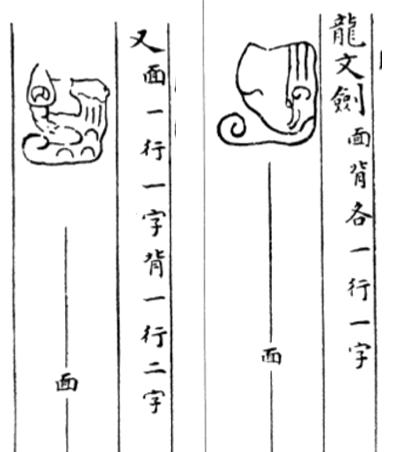 龍文劍面背各一行一字
面
又面一行一字背一行二字
面